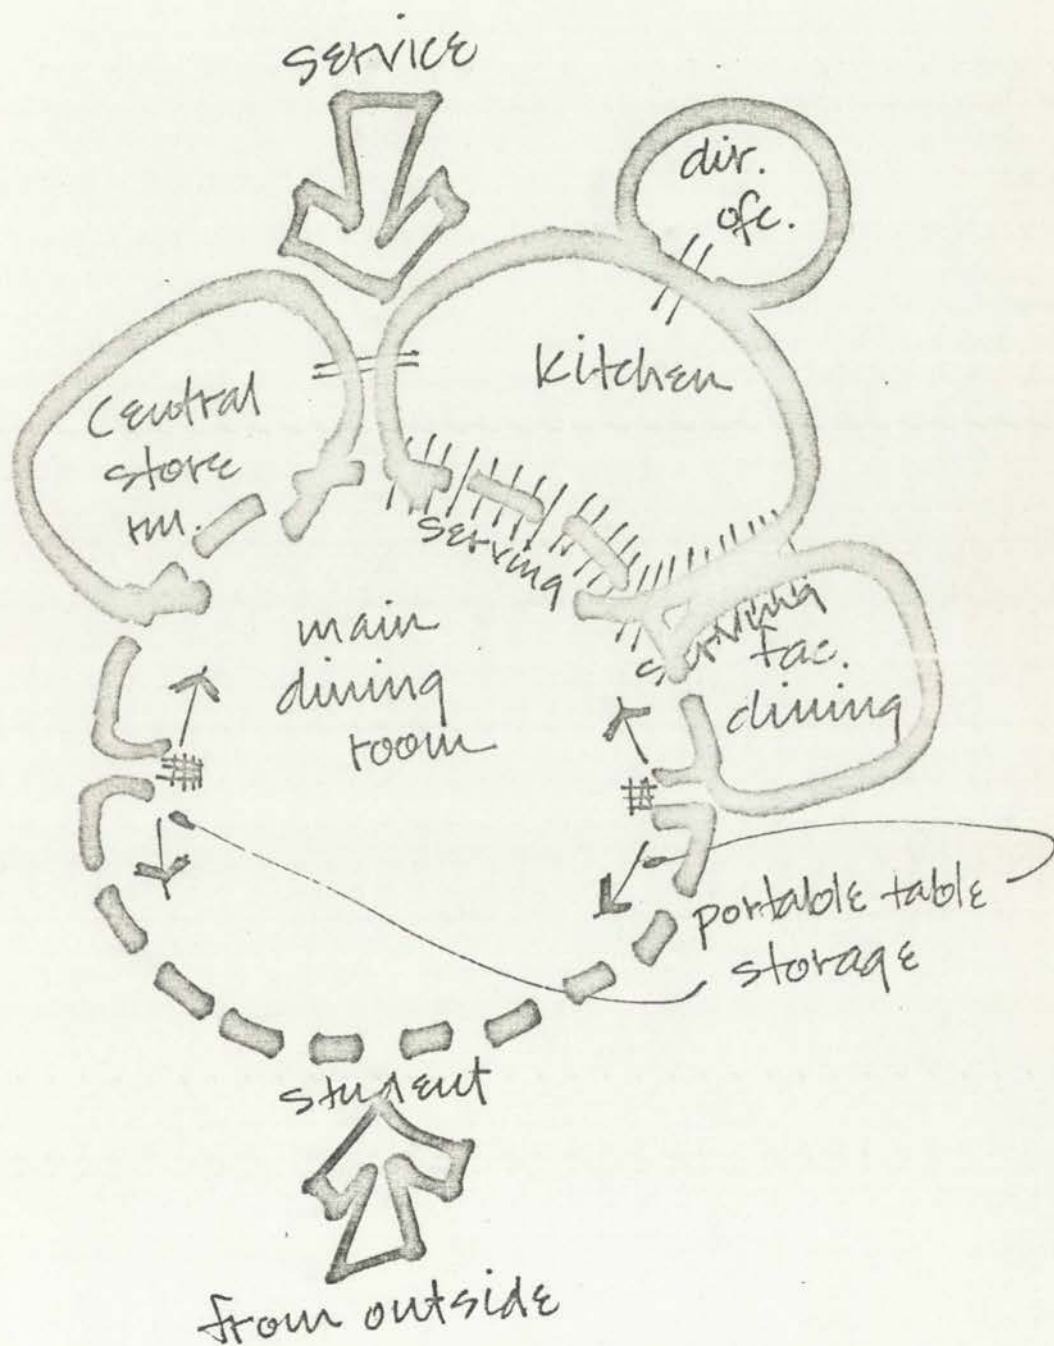 service
dir.
ofc.
kitchen
central
store
rm.
serving
serving
main
dining
room
fac.
dining
portable table
storage
student
from outside